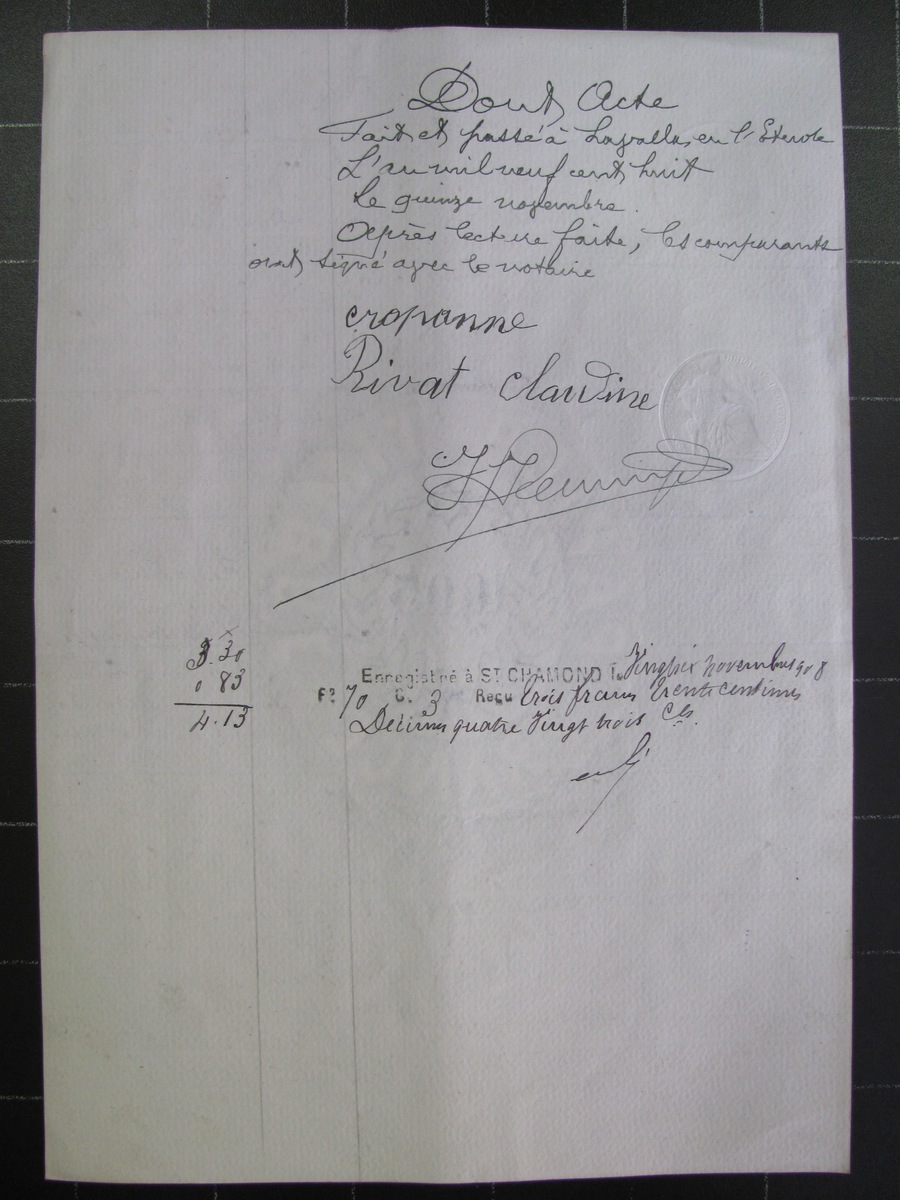 Dont Acte
Fait et passé à Lavalla, en l'Etude
L'an mil neuf cent huit
Le quinze novembre.
Après lecture faite, les comparants
ont signé avec le notaire
cropanne
Rivat claudine
3.30
0 83
4.13
Enregistré à ST CHAMOND le Vingt six novembre 1908
F° 70 C. 3 Reçu trois francs trente centimes
Décimes quatre vingt trois Ces.